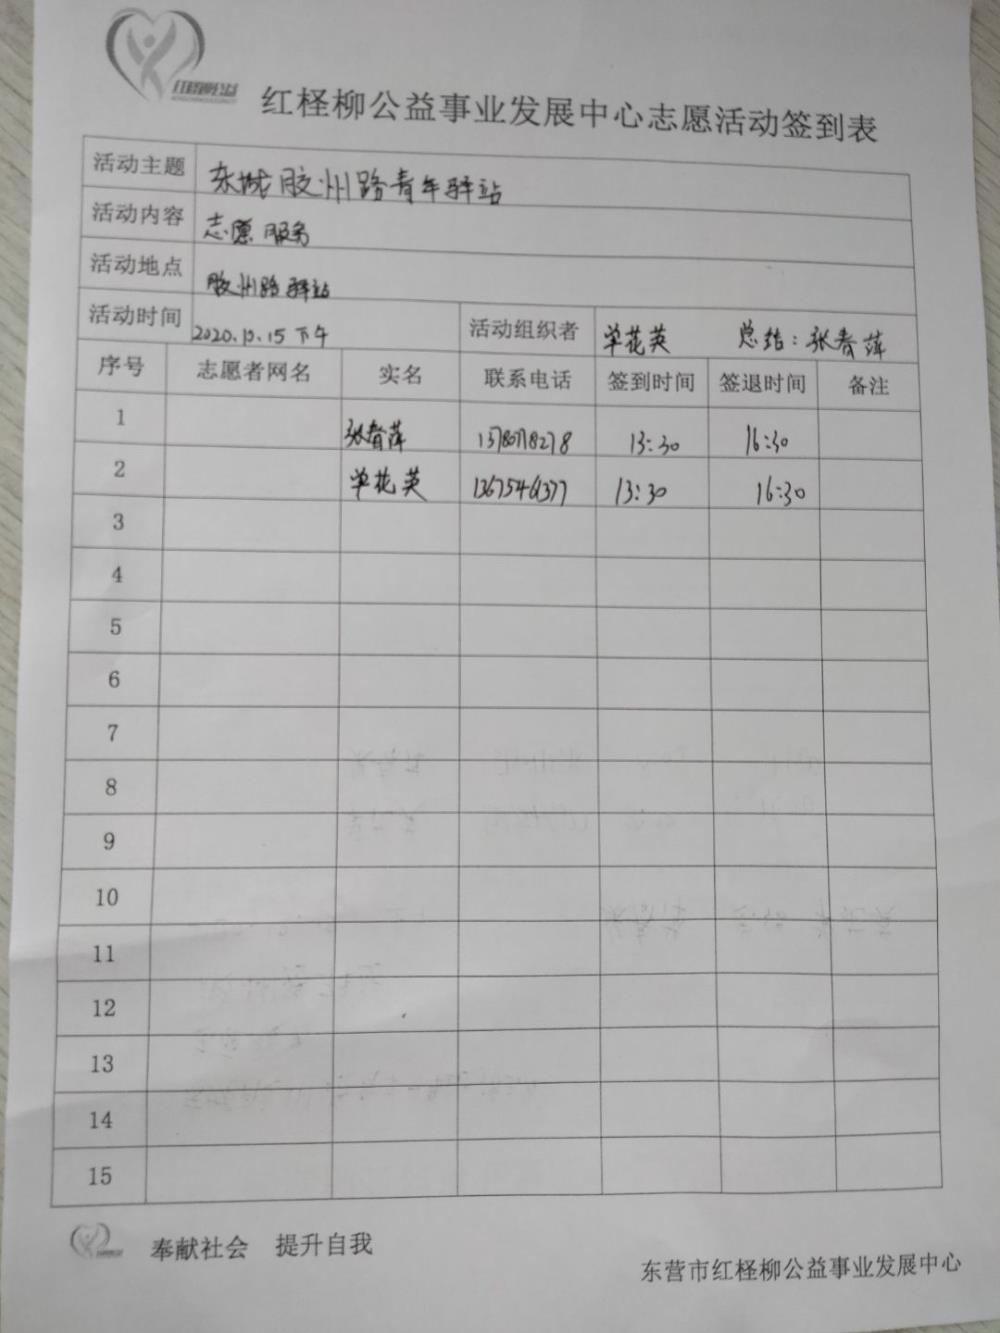 红柽柳公益
红柽柳公益事业发展中心志愿活动签到表
活动主题 东城胶州路青年驿站
活动内容 志愿服务
活动地点 胶州路驿站
活动时间 2020.10.15下午 活动组织者 单花英 总结：张春萍
序号 志愿者网名 实名 联系电话 签到时间 签退时间 备注
1 张春萍 13:30 16:30
2 单花英 13:30 16:30
3
4
5
6
7
8
9
10
11
12
13
14
15
奉献社会 提升自我
东营市红柽柳公益事业发展中心